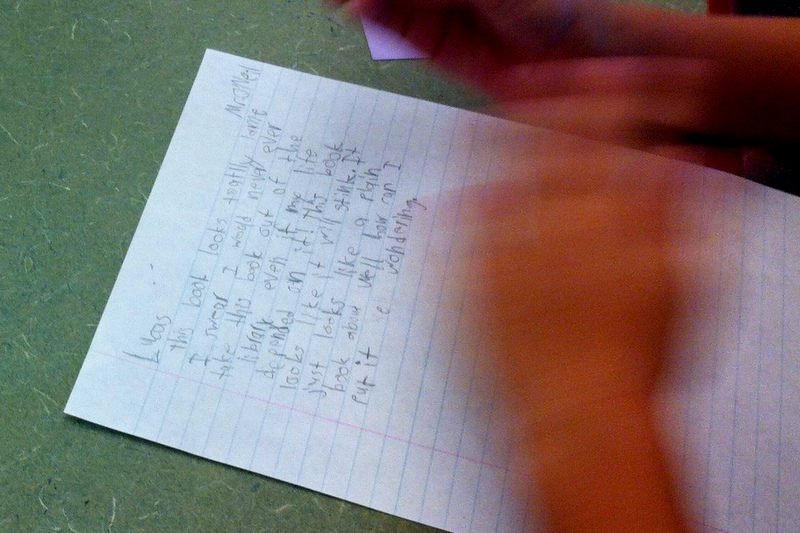 Lucas
this book looks toatlly lame
I swear I would never ever
take this book out of the
library even if my life
depended on it! this book
looks like it will stink. It
just looks like a plain
book about well how can I
put it wondering